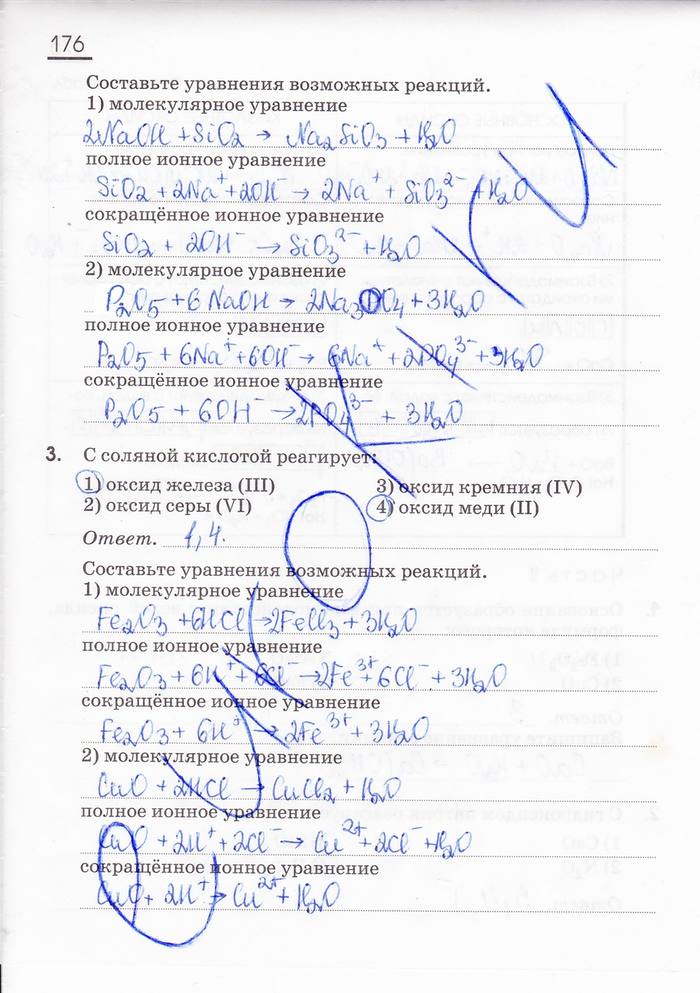 176
Составьте уравнения возможных реакций.
1) молекулярное уравнение
2NaOH + SiO2 → Na2SiO3 + H2O
полное ионное уравнение
SiO2 + 2Na⁺ + 2OH⁻ → 2Na⁺ + SiO3²⁻ + H2O
сокращённое ионное уравнение
SiO2 + 2OH⁻ → SiO3²⁻ + H2O
2) молекулярное уравнение
P2O5 + 6NaOH → 2Na3PO4 + 3H2O
полное ионное уравнение
P2O5 + 6Na⁺ + 6OH⁻ → 6Na⁺ + 2PO4³⁻ + 3H2O
сокращённое ионное уравнение
P2O5 + 6OH⁻ → 2PO4³⁻ + 3H2O
3. С соляной кислотой реагирует:
1) оксид железа (III) 3) оксид кремния (IV)
2) оксид серы (VI) 4) оксид меди (II)
Ответ. 1,4.
Составьте уравнения возможных реакций.
1) молекулярное уравнение
Fe2O3 + 6HCl → 2FeCl3 + 3H2O
полное ионное уравнение
Fe2O3 + 6H⁺ + 6Cl⁻ → 2Fe³⁺ + 6Cl⁻ + 3H2O
сокращённое ионное уравнение
Fe2O3 + 6H⁺ → 2Fe³⁺ + 3H2O
2) молекулярное уравнение
CuO + 2HCl → CuCl2 + H2O
полное ионное уравнение
CuO + 2H⁺ + 2Cl⁻ → Cu²⁺ + 2Cl⁻ + H2O
сокращённое ионное уравнение
CuO + 2H⁺ → Cu²⁺ + H2O